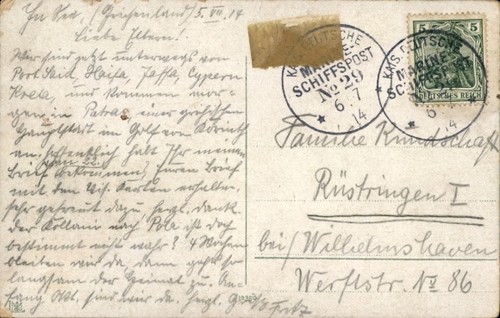 In See, (Griechenland) 5. VII. 14
Liebe Eltern!
Wir sind jetzt unterwegs von
Port Said, Haifa, Jaffa, Cypern
Kreta, und kommen mor-
gen in Patras einer griechischen
Hauptstadt im Golf von Korinth
an. Hoffentlich habt Ihr meinen
Brief vom 22. bekommen, Euren Brief
mit den Karten erhalten,
sehr gefreut dazu herzl. dank.
nach Pola ist doch
bestimmt nicht wahr? 4 Wochen
bleiben wir da, dann geht es
langsam der Heimat zu. An-
fang Okt. sind wir da. herzl. Fritz
KMS. DEUTSCHE
MARINE-
SCHIFFSPOST
No 29
6 7
14
KMS. DEUTSCHE
MARINE-
SCHIFFSPOST
6
14
5
DEUTSCHES REICH
Familie Rundschaft
Rüstringen I
bei/Wilhelmshaven
Werftstr. No 86